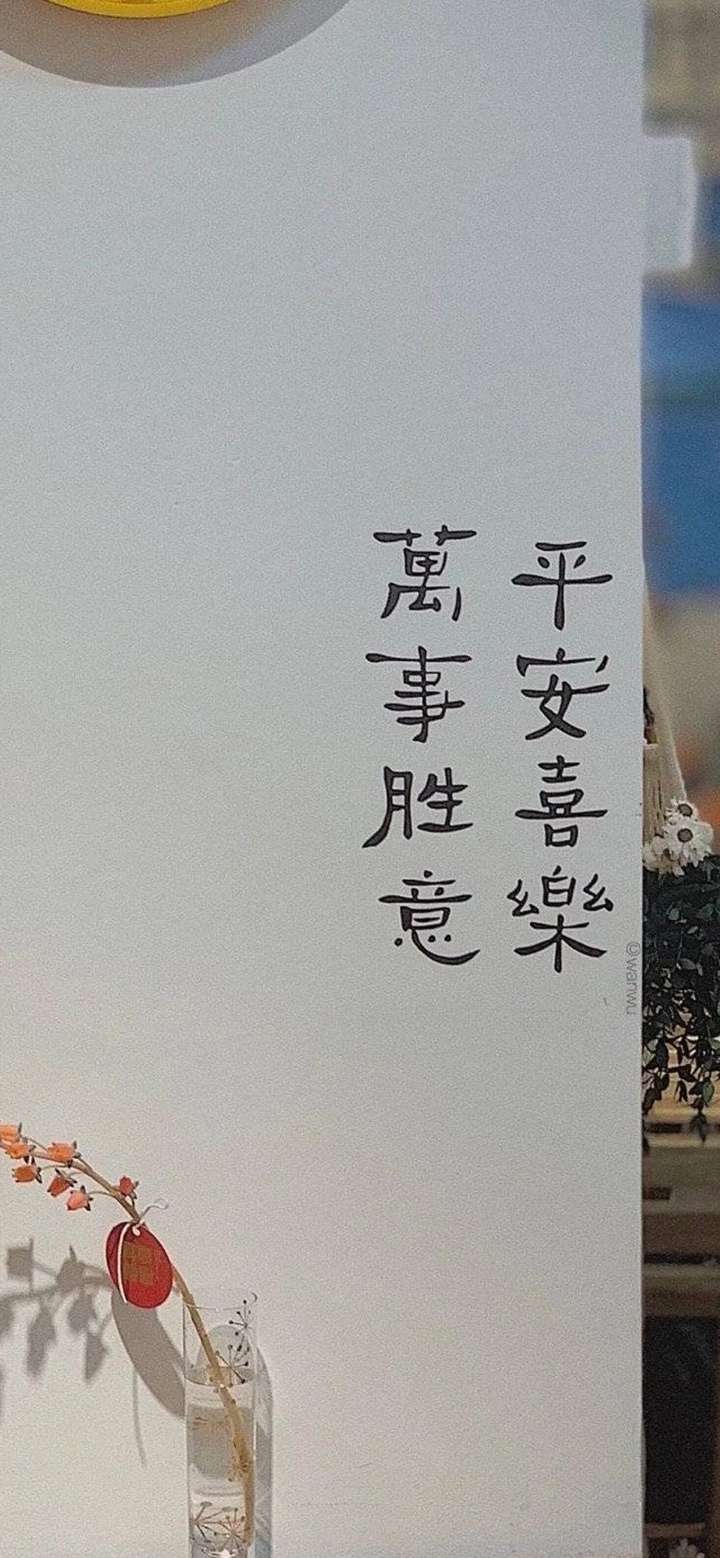 平安喜樂
萬事胜意
@wanwu